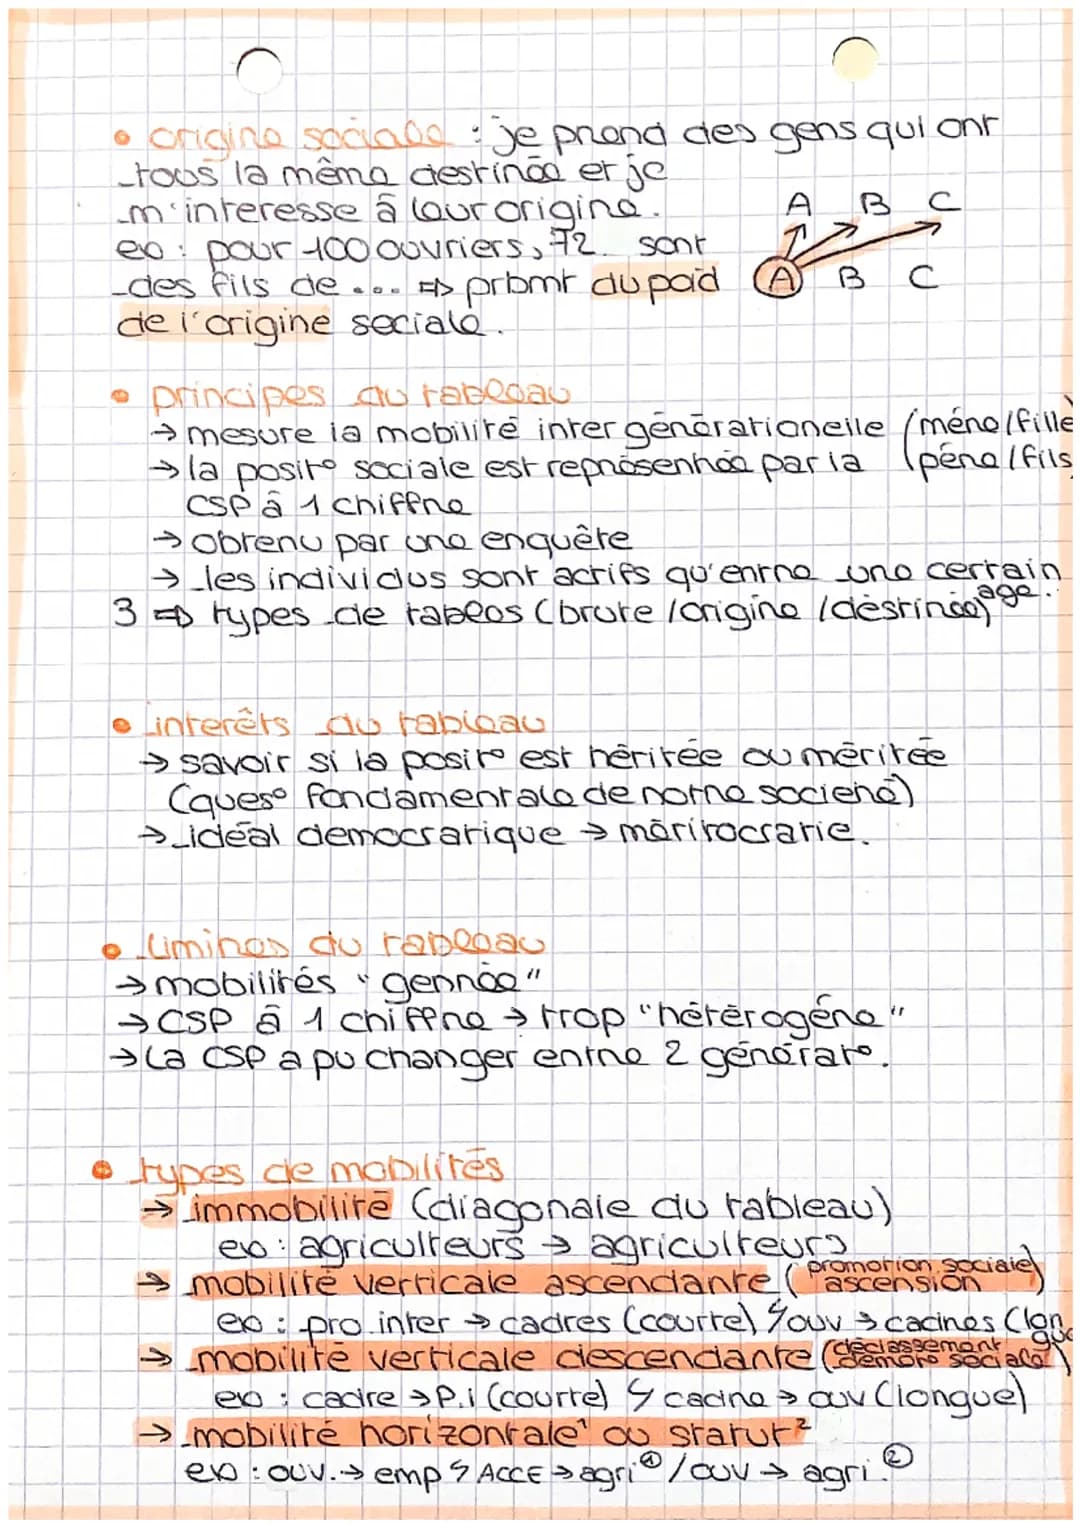 • origine sociale : je prend des gens qui ont
tous la même destinée et je
m'interesse à leur origine.
A B C
ex : pour 100 ouvriers, 72 sont
des fils de ... => prbmt du poid
A B C
de l'origine sociale.
• principes du tableau
→ mesure la mobilité intergénérationelle (mère/fille
→ la posit° sociale est représentée par la (père/fils
CSP à 1 chiffre
→ obtenu par une enquête
→ les individus sont actifs qu'entre une certain
age.
3 => types de tabeos (brute/origine/déstinée)
• interêts du tableau
→ savoir si la posit° est héritée ou méritée
(quest° fondamentale de notre société)
→ idéal democratique → méritocratie.
• limines du tableau
→ mobilités "genrée"
→ CSP à 1 chiffre → trop "hétérogène"
→ La CSP a pu changer entre 2 générat°.
• types de mobilités
→ immobilité (diagonale du tableau)
ex : agriculteurs → agriculteurs
→ mobilité verticale ascendante (promotion sociale)
ascension
ex : pro.inter → cadres (courte) ouv → cadres (longue
→ mobilité verticale descendante (déclassement
démot° sociale)
ex : cadre → P.i (courte) cadre → ouv (longue)
→ mobilité horizontale¹ ou statut²
ex : ouv. → emp ACCE → agri ① / ouv → agri. ②